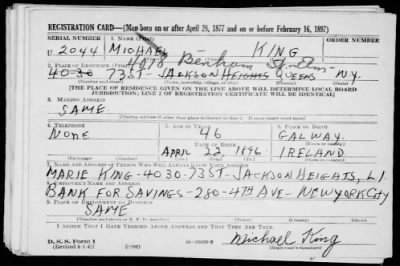 REGISTRATION CARD—(Men born on or after April 28, 1877 and on or before February 16, 1897)
SERIAL NUMBER 1. NAME (Print) ORDER NUMBER
U. 2044 MICHAEL KING
4018 Benham St.
2. PLACE OF RESIDENCE (Print)
40-30 73 ST- JACKSON HEIGHTS QUEENS N.Y.
[THE PLACE OF RESIDENCE GIVEN ON THE LINE ABOVE WILL DETERMINE LOCAL BOARD
JURISDICTION; LINE 2 OF REGISTRATION CERTIFICATE WILL BE IDENTICAL]
3. MAILING ADDRESS
SAME
4. TELEPHONE 5. AGE IN YEARS 6. PLACE OF BIRTH
NONE 46 GALWAY
DATE OF BIRTH
APRIL 22 1896 IRELAND
7. NAME AND ADDRESS OF PERSON WHO WILL ALWAYS KNOW YOUR ADDRESS
MARIE KING-4030-73ST-JACKSON HEIGHTS, L.I.
8. EMPLOYER'S NAME AND ADDRESS
BANK FOR SAVINGS-280-4TH AVE-NEW YORK CITY
9. PLACE OF EMPLOYMENT OR BUSINESS
SAME
I AFFIRM THAT I HAVE VERIFIED ABOVE ANSWERS AND THAT THEY ARE TRUE.
D. S. S. Form 1
Michael King